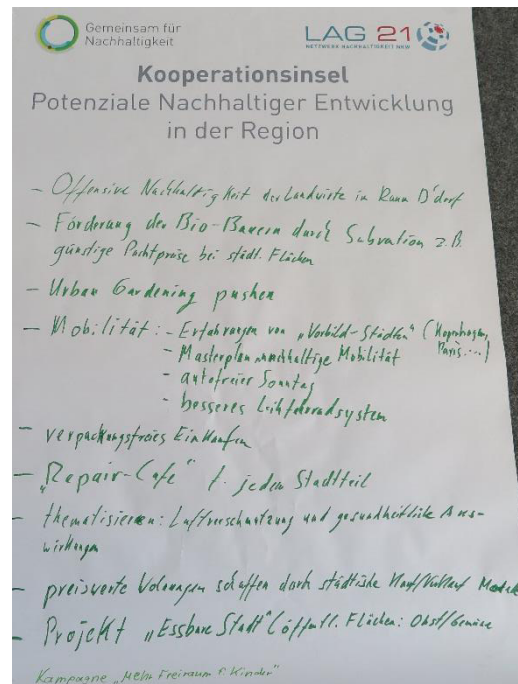 Gemeinsam für
Nachhaltigkeit
LAG 21
NETZWERK NACHHALTIGKEIT NRW
Kooperationsinsel
Potenziale Nachhaltiger Entwicklung
in der Region
- Offensive Nachhaltigkeit der Landwirte in Raum D'dorf
- Förderung der Bio-Bauern durch z.B.
günstige Pachtpreise bei städt. Flächen
- Urban Gardening pushen
- Mobilität: - Erfahrungen von „Vorbild-Städten" (Kopenhagen,
Paris...)
- Masterplan nachhaltige Mobilität
- autofreier Sonntag
- besseres Leihfahrradsystem
- verpackungsfreies Einkaufen
- „Repair-Cafe" f. jeden Stadtteil
- thematisieren: Luftverschmutzung und gesundheitliche Aus-
wirkungen
- preiswerte schaffen durch städtische
- Projekt „Essbare Stadt" (öffentl. Flächen: Obst/Gemüse
Kampagne „Mehr Freiraum f. Kinder"